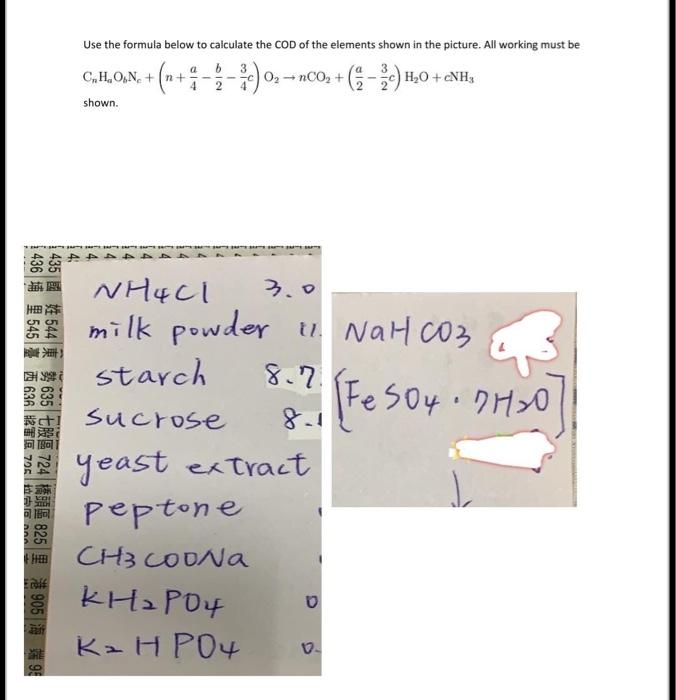 Use the formula below to calculate the COD of the elements shown in the picture. All working must be
CₙHₐO_bN_c + (n + a/4 − b/2 − 3/4 c) O₂ → nCO₂ + (a/2 − 3/2 c) H₂O + cNH₃
shown.
NH4Cl 3.0
milk powder 11.
starch 8.7
sucrose 8.
yeast extract
peptone
CH3COONa
KH2PO4 0
K2HPO4 0.
NaHCO3
[FeSO4·7H2O]
↓
435 國 姓 544 東 勢 635 七股區 724 橋頭區 825
436 埔 里 545 臺 西 636 里 港 905